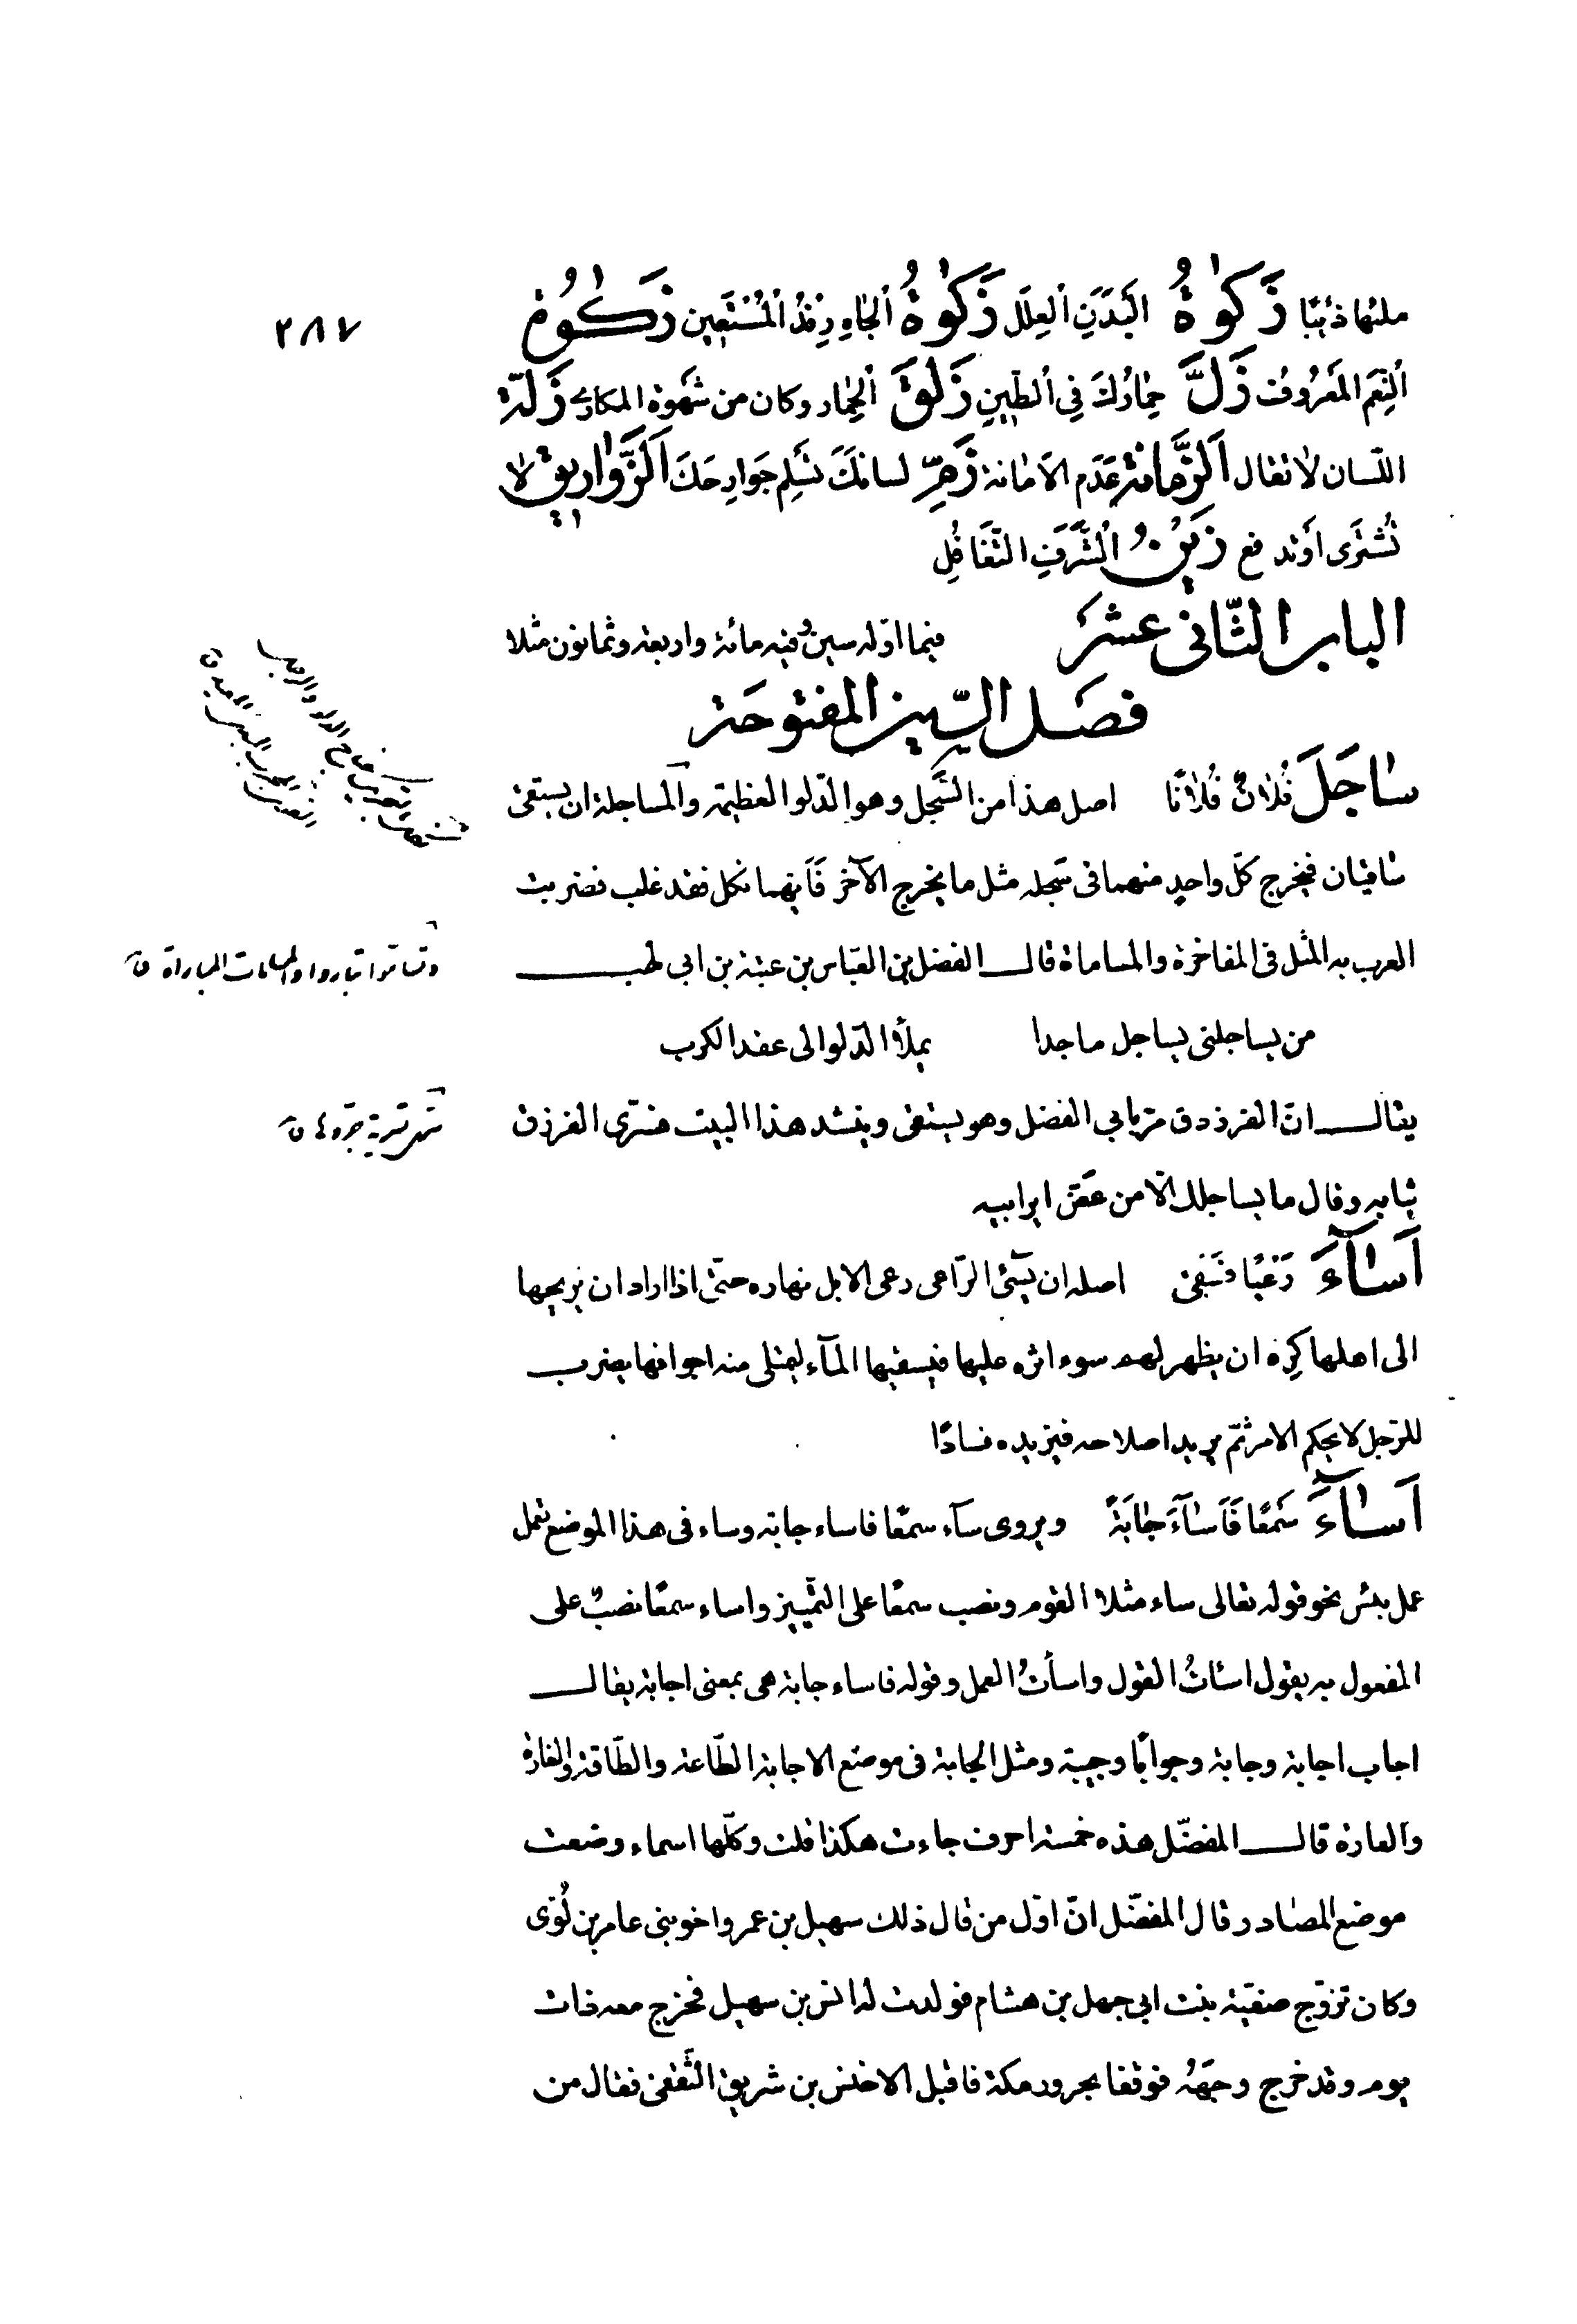 ٣٨٧
ملئها ذئبًا زَكَوٰةُ الْبَدَنِ الْعِلَل زَكَوٰةُ الْجَاهِ رِفْدُ الْمُسْتَعِين زَكٰوةُ
النِّعَمِ المَعْرُوف زَلَّ حِمَارُكَ فِي الطِّينِ زَلَقَ الْحِمَار وكان من شَهْوَة المكارى زَلّة
اللّسان لا تقال اَلزَّمانَة عَدَم الاَمانة زَمِّ لسانكَ تَسْلِم جَوارِحكَ اَلزَّواريق لا
تُشترى او تدفع زَيْنُ الشَّرَفِ التَّغافُلِ
الباب الثّانى عشر فيما اوّله سين وفيه مائة واربعة وثمانون مثلا
فصل السّين المفتوحة
سٰاجَلَ فُلانٌ فُلانًا اصل هذا من السَّجل وهو الدّلو العظيمة والمساجلة ان يستقى
ساقيان فيخرج كلّ واحدٍ منهما فى سَجله مثل ما يخرج الآخر فَاَيّهما نكل فقد غلب فضربت
العرب به المثل فى المفاخرة والمساماة قال الفضل بن العبّاس بن عتبة بن ابى لهب
وتساموا تباروا والمسامات المباراة ق
من يساجلنى يساجل ماجدا يملأ الدّلو الى عقد الكرب
يقال انّ الفرزدق مرّ بابي الفضل وهو يستقى وينشد هذا البيت فسرّى الفرزدق
ثيابه وقال ما يساجلك الّا من عَضّ اير ابيه
اَسٰآءَ رَعْيًا فَسَقى اصله ان يسئ الرّاعى رعى الابل نهاره حتّى اذا اراد ان يريحها
الى اهلها كِرَه ان يظهر لهم سوء اثره عليها فيسقيها المآء ليمتلى منه اجوافها يضرب
للرّجل لا يحكم الامر ثمّ يريد اصلاحه فيزيده فسادًا
اَسٰآءَ سَمْعًا فَاَسٰآءَ جٰابَةً ويروى سآء سمعًا فاساء جابة وساء فى هذا الموضع تعمل
عمل بئس نحو قوله تعالى ساء مثلا القوم ونصب سمعًا على التّمييز واساء سمعًا نصبٌ على
المفعول به يقول اسئاتُ القول واسأتُ العمل وقوله فاساء جابة هى بمعنى اجابة يقال
اجاب اجابة وجابة وجوابًا وجيبة ومثل الجابة فى موضع الاجابة الطّاعة والطّاقة والغارة
والعارة قال المفضّل هذه خمسة احرف جاءت هكذا قلت وكلّها اسماء وضعت
موضع المصادر وقال المفضّل انّ اوّل من قال ذلك سهيل بن عمرو اخو بنى عامر بن لُوَى
وكان تزوّج صفيّة بنت ابى جهل بن هشام فولدت له انس بن سهيل فخرج معه ذات
يوم وقد خرج وجهَهُ فوقفا بحرورمكة فاقبل الاخنس بن شريق الثّقفى فقال من